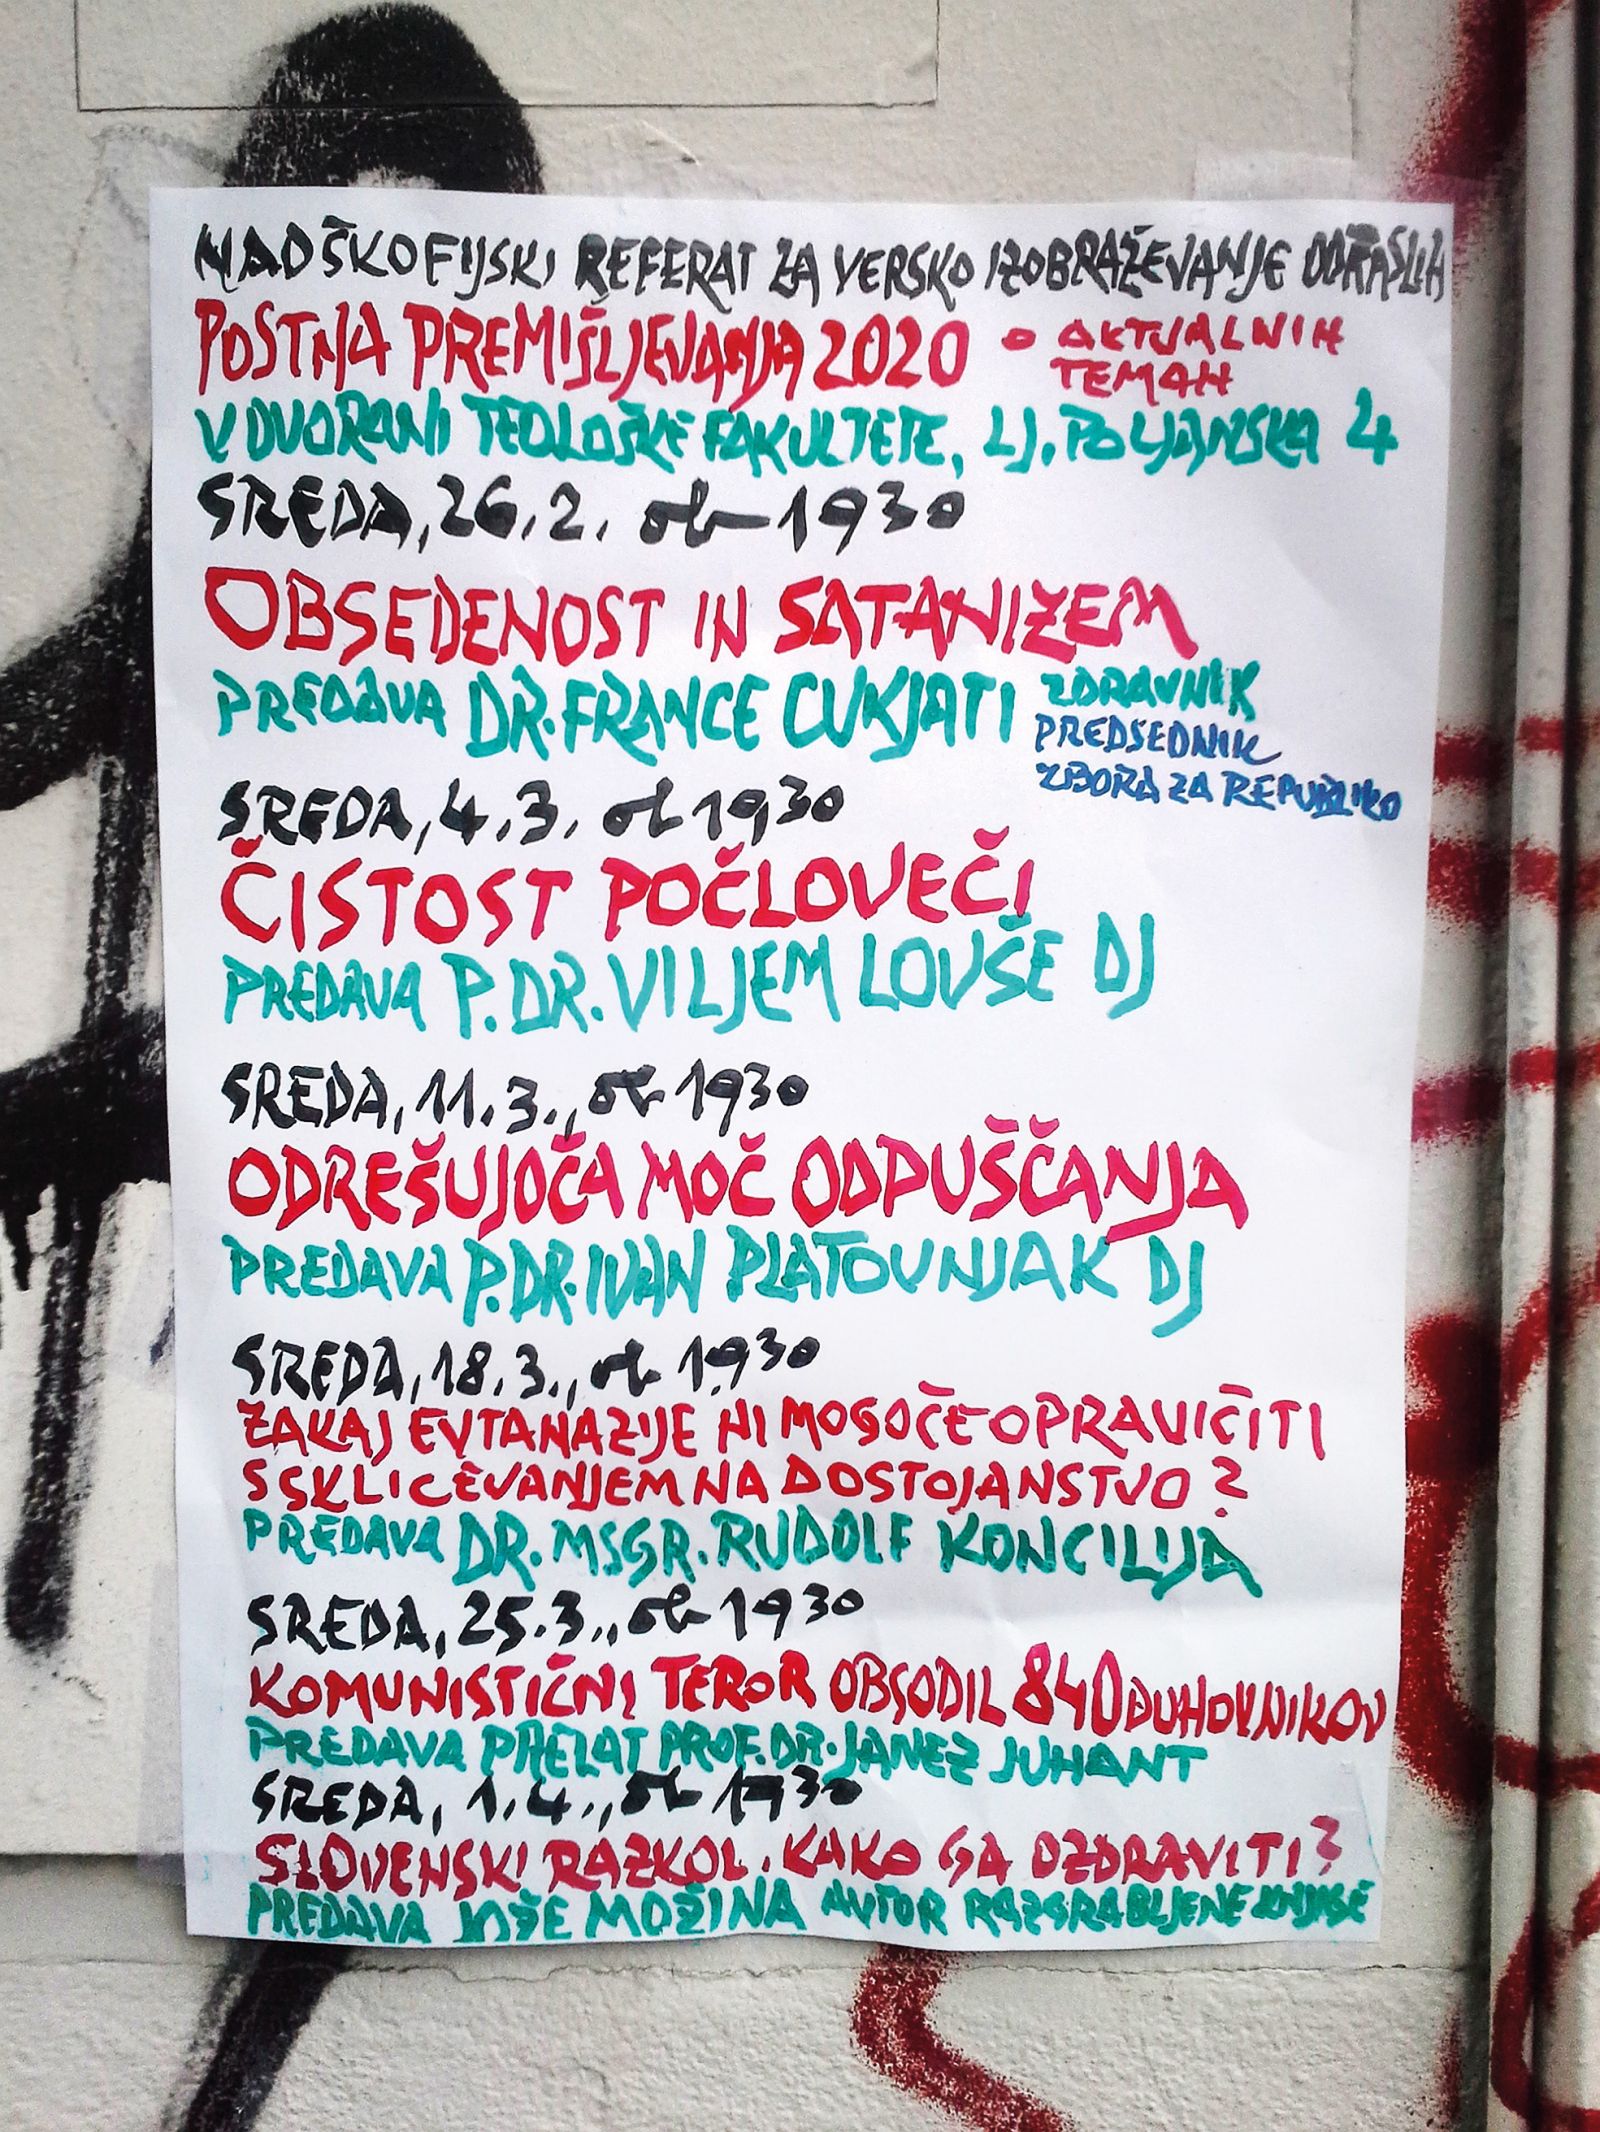 NADŠKOFIJSKI REFERAT ZA VERSKO IZOBRAŽEVANJE ODRASLIH
POSTNA PREMIŠLJEVANJA 2020 O AKTUALNIH
TEMAH
V DVORANI TEOLOŠKE FAKULTETE, LJ. POLJANSKA 4
SREDA, 26.2. ob 19 30
OBSEDENOST IN SATANIZEM
PREDAVA DR. FRANCE CUKJATI ZDRAVNIK
PREDSEDNIK
ZBORA ZA REPUBLIKO
SREDA, 4.3. ob 19 30
ČISTOST POČLOVEČI
PREDAVA P. DR. VILJEM LOVŠE DJ
SREDA, 11.3., ob 19 30
ODREŠUJOČA MOČ ODPUŠČANJA
PREDAVA P. DR. IVAN PLATOVNJAK DJ
SREDA, 18.3., ob 19 30
ZAKAJ EVTANAZIJE NI MOGOČE OPRAVIČITI
S SKLICEVANJEM NA DOSTOJANSTVO?
PREDAVA DR. MSGR. RUDOLF KONCILIJA
SREDA, 25.3., ob 19 30
KOMUNISTIČNI TEROR OBSODIL 840 DUHOVNIKOV
PREDAVA PRELAT PROF. DR. JANEZ JUHANT
SREDA, 1.4., ob 19 30
SLOVENSKI RAZKOL. KAKO GA OZDRAVITI?
PREDAVA JOŽE MOŽINA AVTOR RAZGRABLJENE KNJIGE